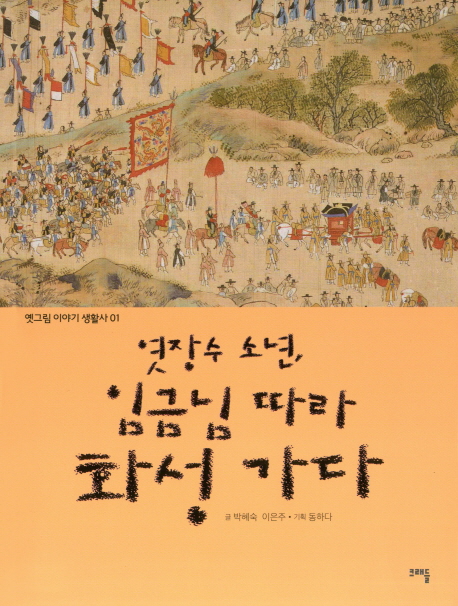 옛그림 이야기 생활사 01
엿장수 소년,
임금님 따라
화성 가다
글 박혜숙 이은주 • 기획 동하다
크레들